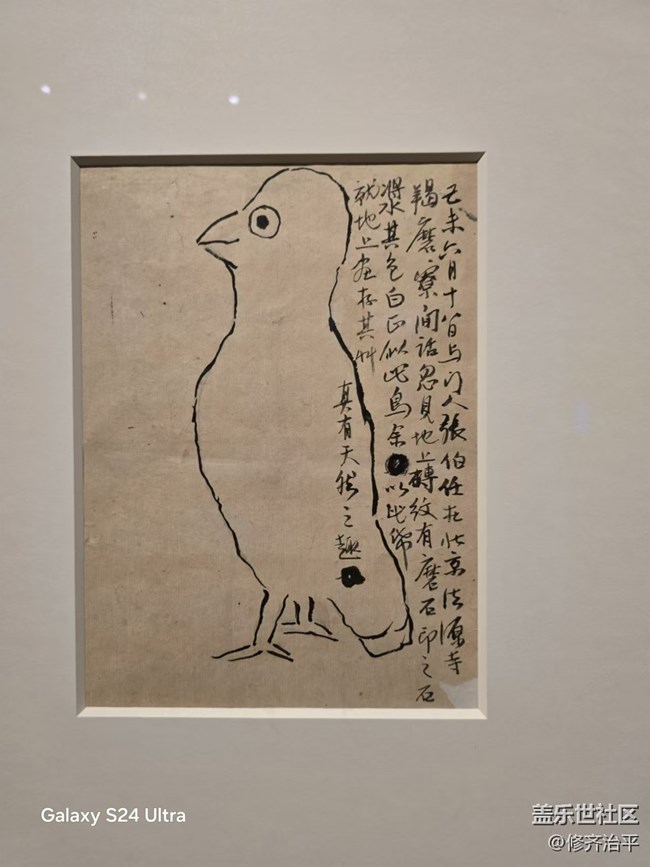 己未六月十八日与门人張伯任在北京法源寺
羯磨寮间話忽見地上磚紋有磨石印之石
漿其色白正似此鳥余以此纸
就地上画存其艸
真有天然之趣
Galaxy S24 Ultra
盖乐世社区
@修齐治平